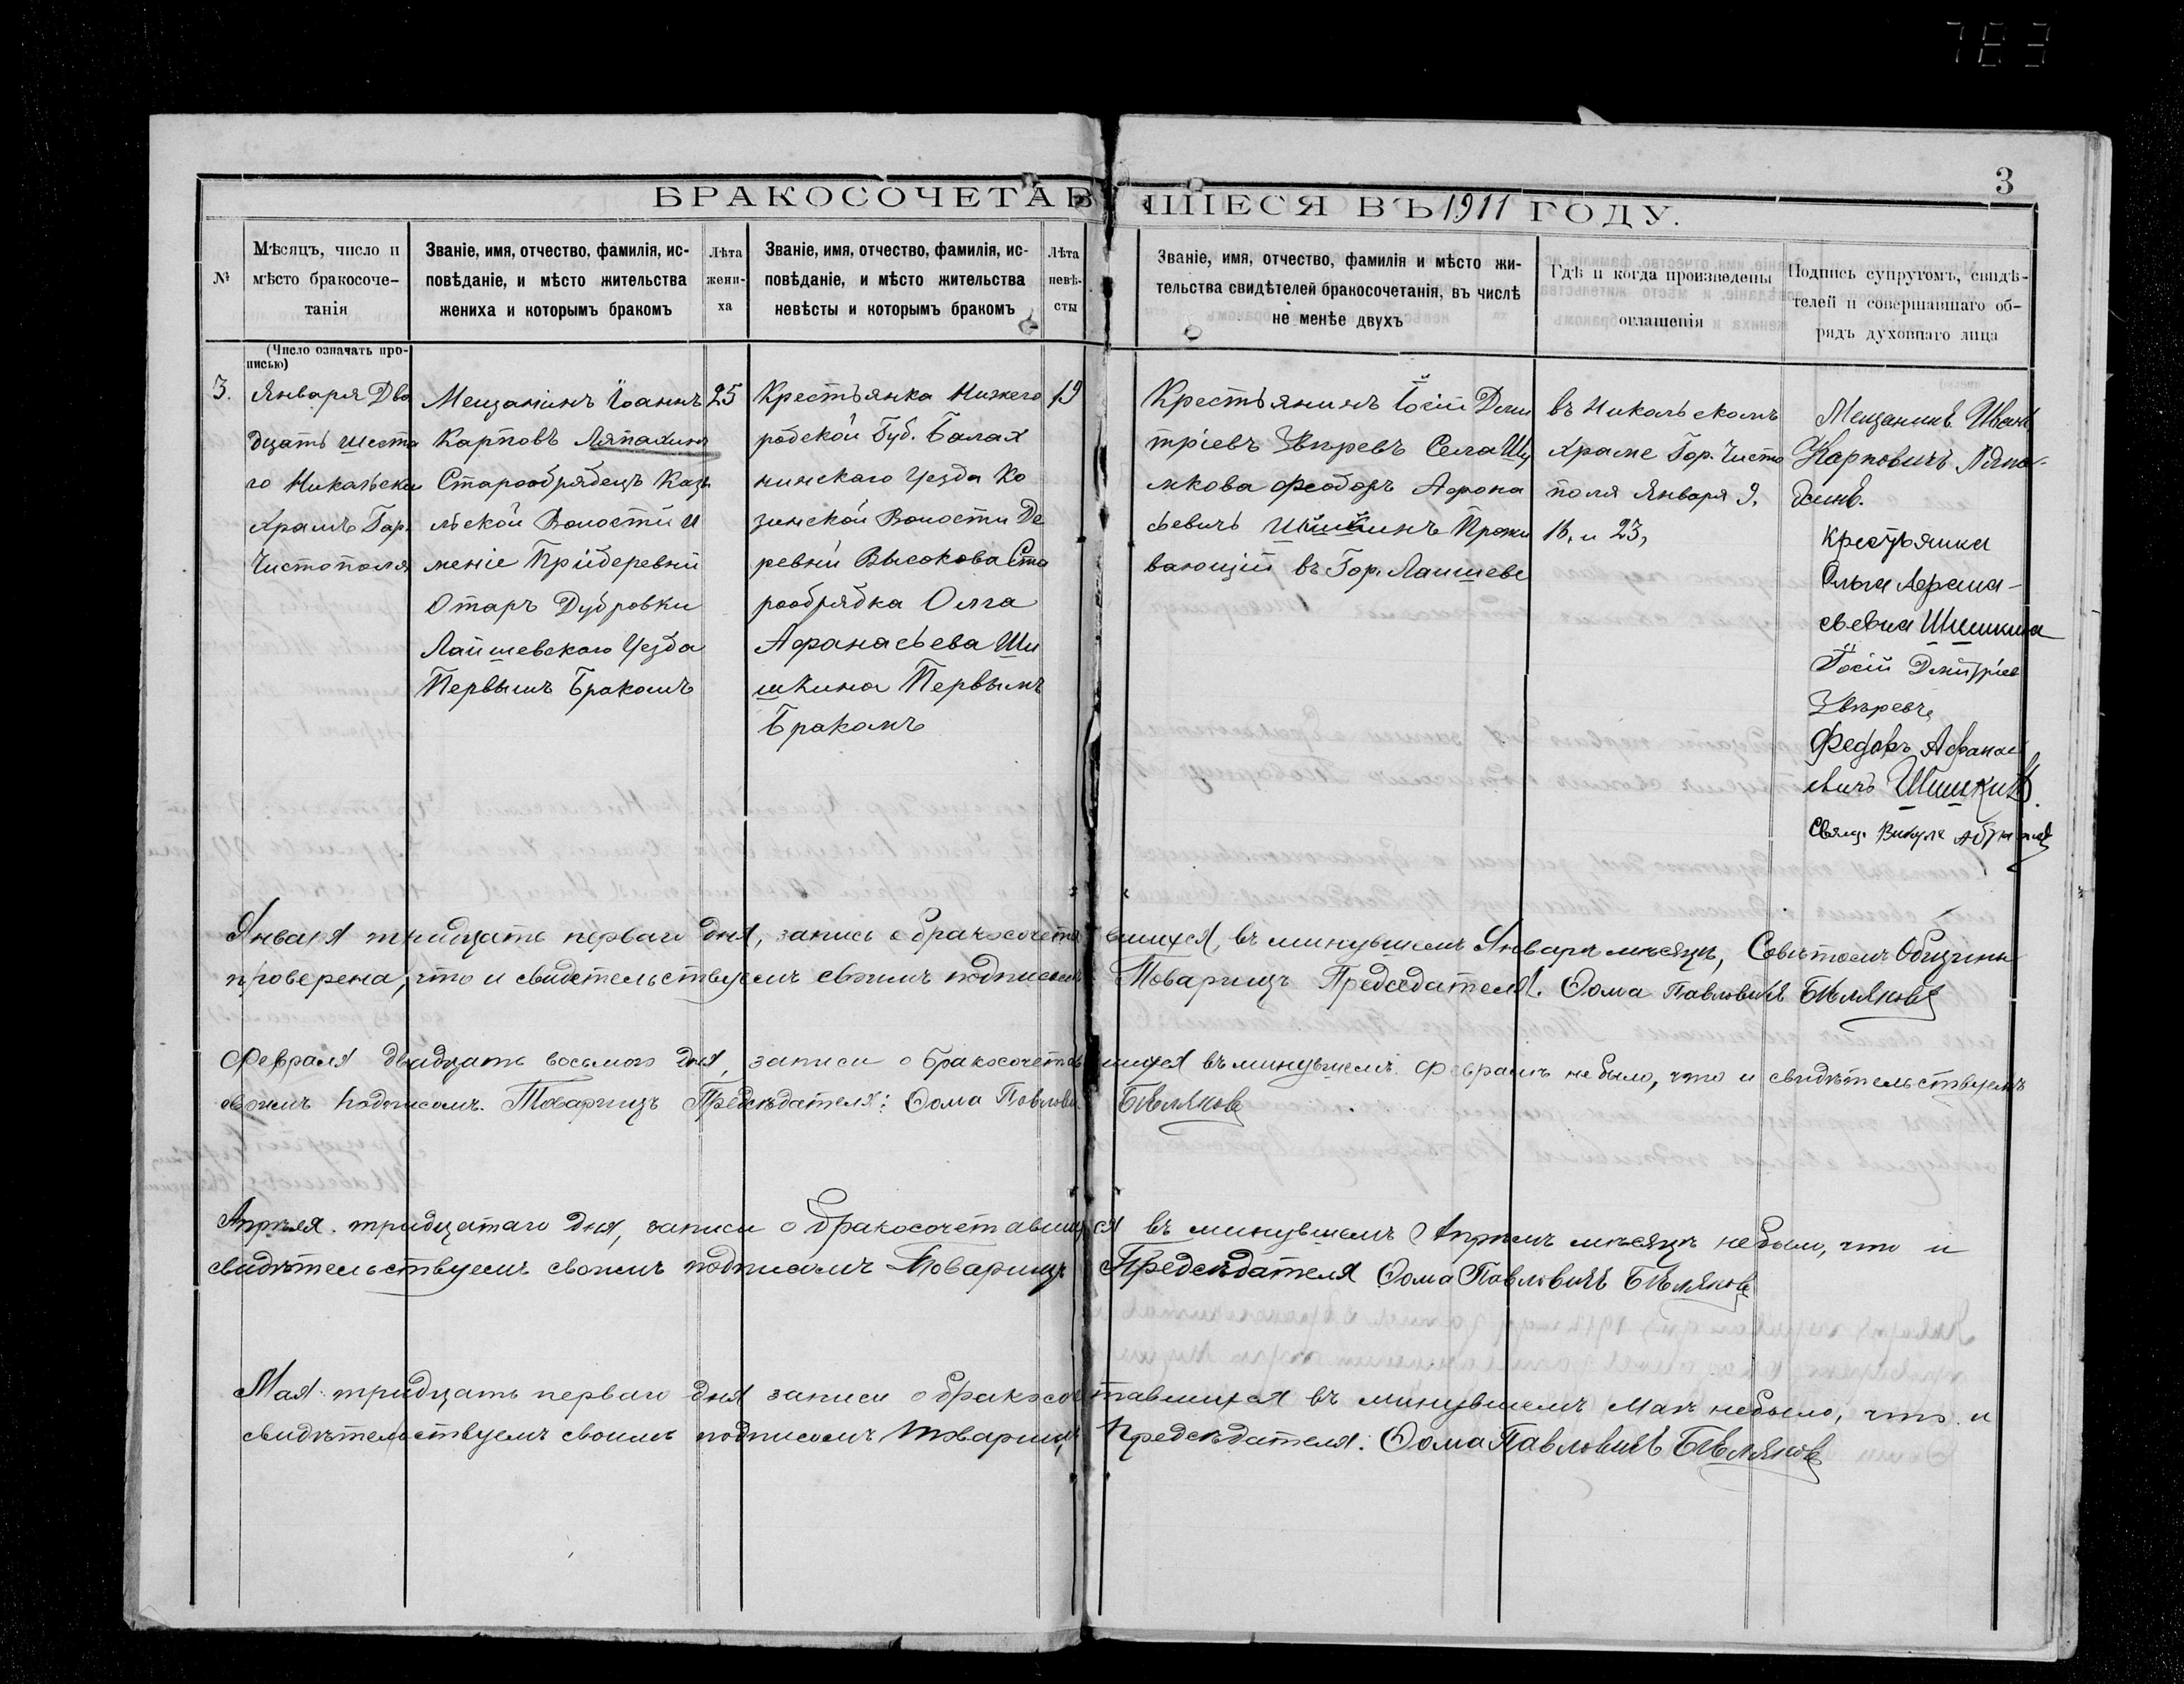 783
3
БРАКОСОЧЕТАВШІЕСЯ ВЪ 1911 ГОДУ.
№
Мѣсяцъ, число и
мѣсто бракосоче-
танія
Званіе, имя, отчество, фамилія, ис-
повѣданіе, и мѣсто жительства
жениха и которымъ бракомъ
Лѣта
жени-
ха
Званіе, имя, отчество, фамилія, ис-
повѣданіе, и мѣсто жительства
невѣсты и которымъ бракомъ
Лѣта
невѣ-
сты
Званіе, имя, отчество, фамилія и мѣсто жи-
тельства свидѣтелей бракосочетанія, въ числѣ
не менѣе двухъ
Гдѣ и когда произведены
оглашенія
Подпись супруговъ, свидѣ-
телей и совершавшаго об-
рядъ духовнаго лица
(Число означать про-
писью)
3.
Января Два
дцать шеста
го Никольски
Храмъ Гор.
Чистополя
Мещанинъ Іоаннъ
Карповъ Ляпахинъ
Старообрядецъ Казы
льской Волости И
меніе При деревни
Отаръ Дубровки
Лаишевскаго Уезда
Первымъ Бракомъ
25
Крестьянка Нижего
родской Губ. Балах
нинскаго Уезда Ко
зинской Волости Де
ревни Высокова Ста
рообрядка Олга
Афанасьева Ши
шкина Первымъ
Бракомъ
19
Крестьянинъ Іосій Дми
тріевъ Звѣревъ Села Шу
мкова Феодоръ Афона
сьевичъ Шишкинъ Прожи
вающій въ Гор. Лаишеве
въ Никольскомъ
Храме Гор. Чисто
поля Января 9,
16, и 23,
Мещанинъ Иванъ
Карповичъ Ляпа-
хинъ.
крестьянка
Ольга Афана-
сьевна Шишкина
Іосій Дмитріев
Звѣревъ
Федоръ Афанас
евичъ Шишкинъ.
Свящ. Викула
Января тридцать перваго дня, запись о бракосочетавшихся, въ минувшемъ Январѣ мѣсяцѣ, Совѣтомъ Общины
проверена, что и свидетельствуемъ своимъ подписомъ Товарищъ Председателя. Ѳома Павловичъ Бѣляковъ
Февраля двадцать восьмого дня, записи о бракосочетавшихся въ минувшемъ Февралѣ небыло, что и свидѣтельствуемъ
своимъ подписомъ. Товарищъ Предсѣдателя: Ѳома Павлови Бѣляковъ
Апрѣля тридцатаго дня, записи о бракосочетавшихся въ минувшемъ Апрѣлѣ мѣсяцѣ небыло, что и
свидѣтельствуемъ своимъ подписомъ Товарищъ Предсѣдателя Ѳома Павловичъ Бѣляковъ
Мая тридцать перваго дня записи о бракосочетавшихся въ минувшемъ Маѣ небыло, что и
свидѣтельствуемъ своимъ подписомъ Товарищъ Предсѣдателя. Ѳома Павловичъ Бѣляковъ